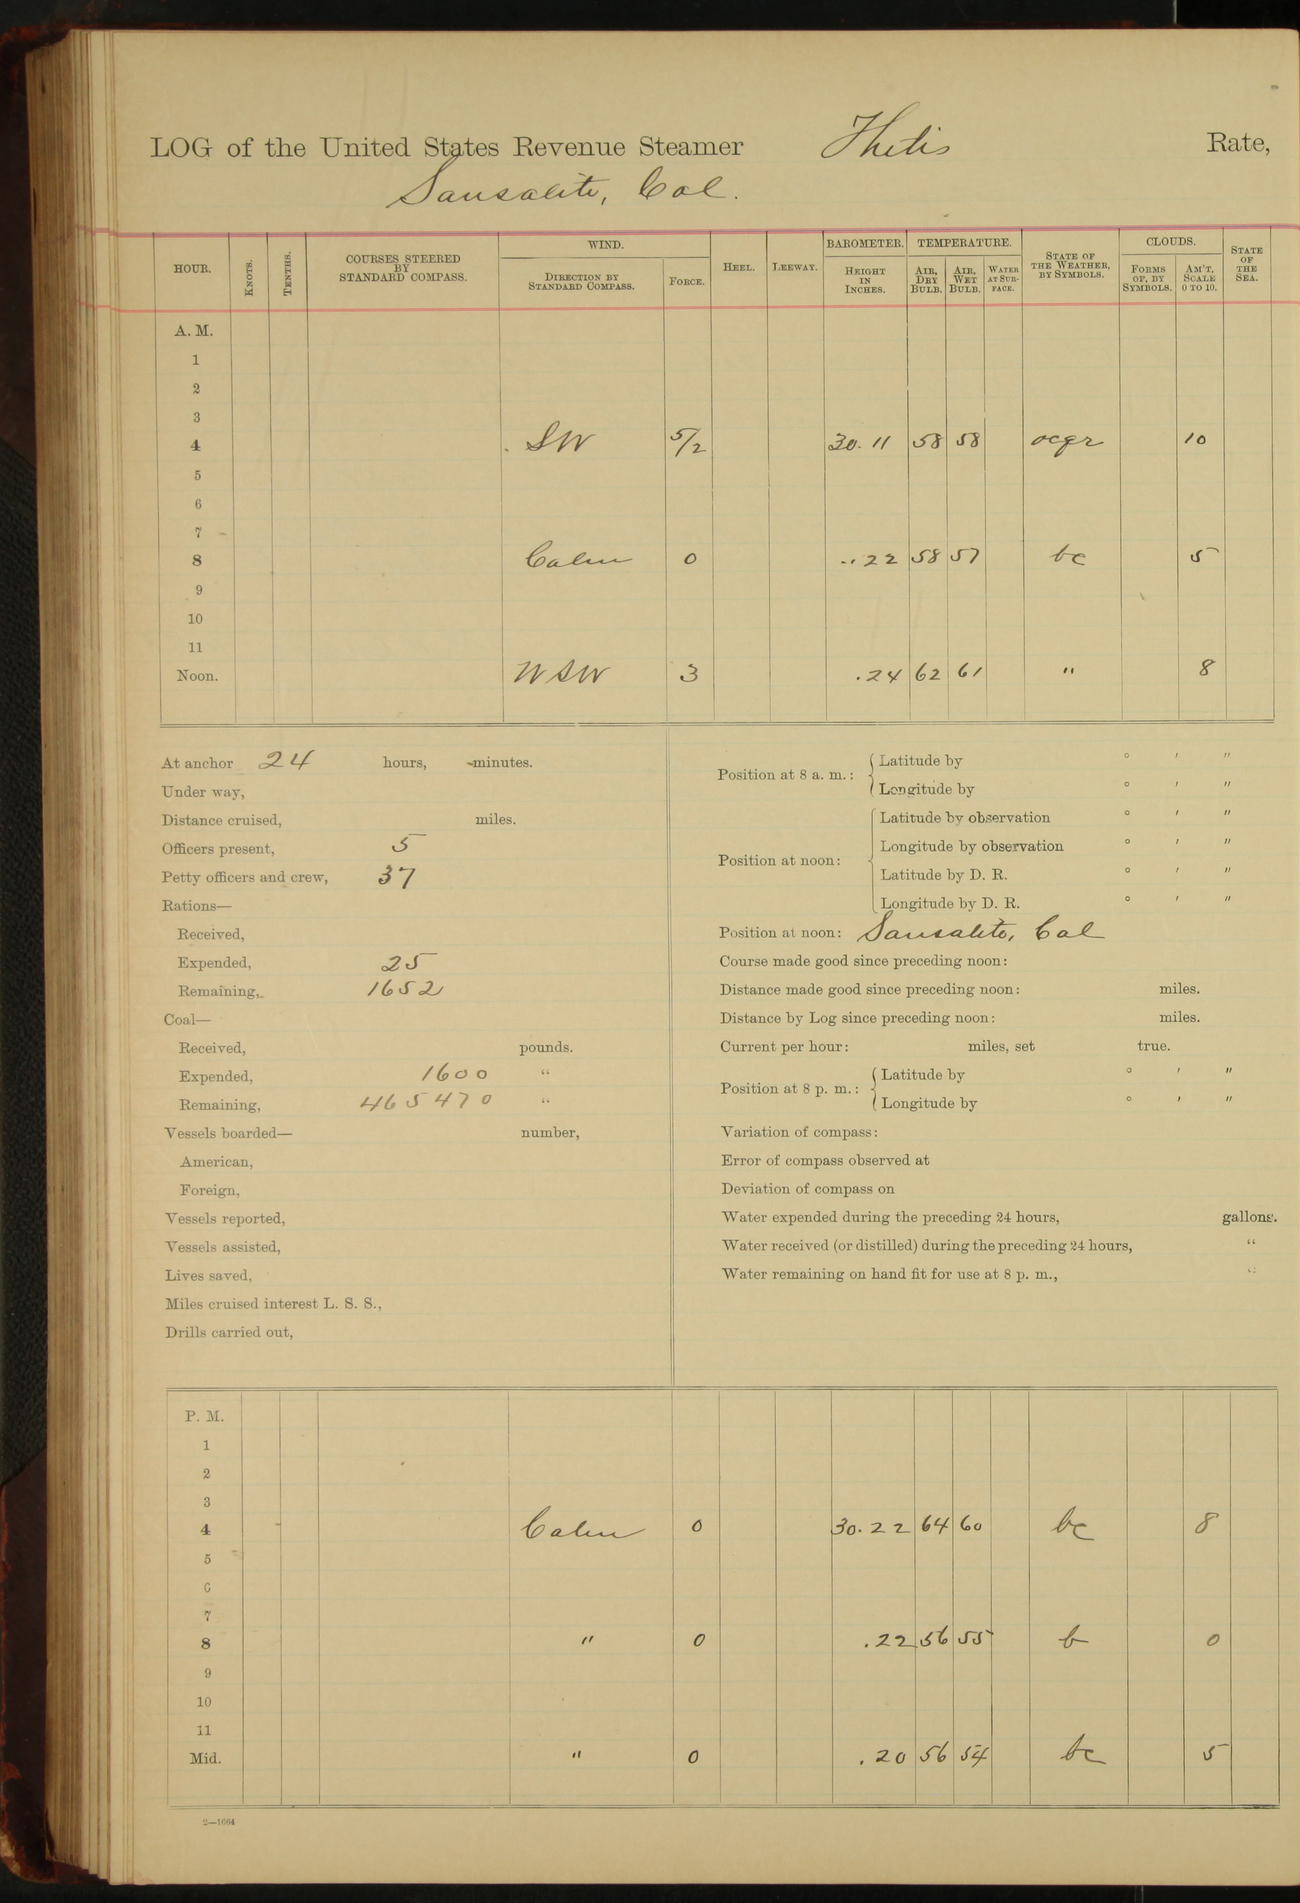 LOG of the United States Revenue Steamer Thetis Rate,
Sausalito, Cal.
HOUR. KNOTS. TENTHS. COURSES STEERED BY STANDARD COMPASS. WIND. DIRECTION BY STANDARD COMPASS. FORCE. HEEL. LEEWAY. BAROMETER. HEIGHT IN INCHES. TEMPERATURE. AIR, DRY BULB. AIR, WET BULB. WATER AT SURFACE. STATE OF THE WEATHER, BY SYMBOLS. CLOUDS. FORMS OF, BY SYMBOLS. AM'T, SCALE 0 TO 10. STATE OF THE SEA.
A. M.
1
2
3
4 SW 5/2 30.11 58 58 ocgr 10
5
6
7
8 Calm 0 .. 22 58 57 bc 5
9
10
11
Noon. WSW 3 .24 62 61 " 8
At anchor 24 hours, - minutes.
Under way,
Distance cruised, miles.
Officers present, 5
Petty officers and crew, 37
Rations—
Received,
Expended, 25
Remaining, 1652
Coal—
Received, pounds.
Expended, 1600 "
Remaining, 465470 "
Vessels boarded— number,
American,
Foreign,
Vessels reported,
Vessels assisted,
Lives saved,
Miles cruised interest L. S. S.,
Drills carried out,
Position at 8 a. m.: Latitude by ° ′ ″
Longitude by ° ′ ″
Position at noon: Latitude by observation ° ′ ″
Longitude by observation ° ′ ″
Latitude by D. R. ° ′ ″
Longitude by D. R. ° ′ ″
Position at noon: Sausalito, Cal
Course made good since preceding noon:
Distance made good since preceding noon: miles.
Distance by Log since preceding noon: miles.
Current per hour: miles, set true.
Position at 8 p. m.: Latitude by ° ′ ″
Longitude by ° ′ ″
Variation of compass:
Error of compass observed at
Deviation of compass on
Water expended during the preceding 24 hours, gallons.
Water received (or distilled) during the preceding 24 hours, "
Water remaining on hand fit for use at 8 p. m., "
P. M.
1
2
3
4 Calm 0 30.22 64 60 bc 8
5
6
7
8 " 0 .22 56 55 b 0
9
10
11
Mid. " 0 .20 56 54 bc 5
2—1664